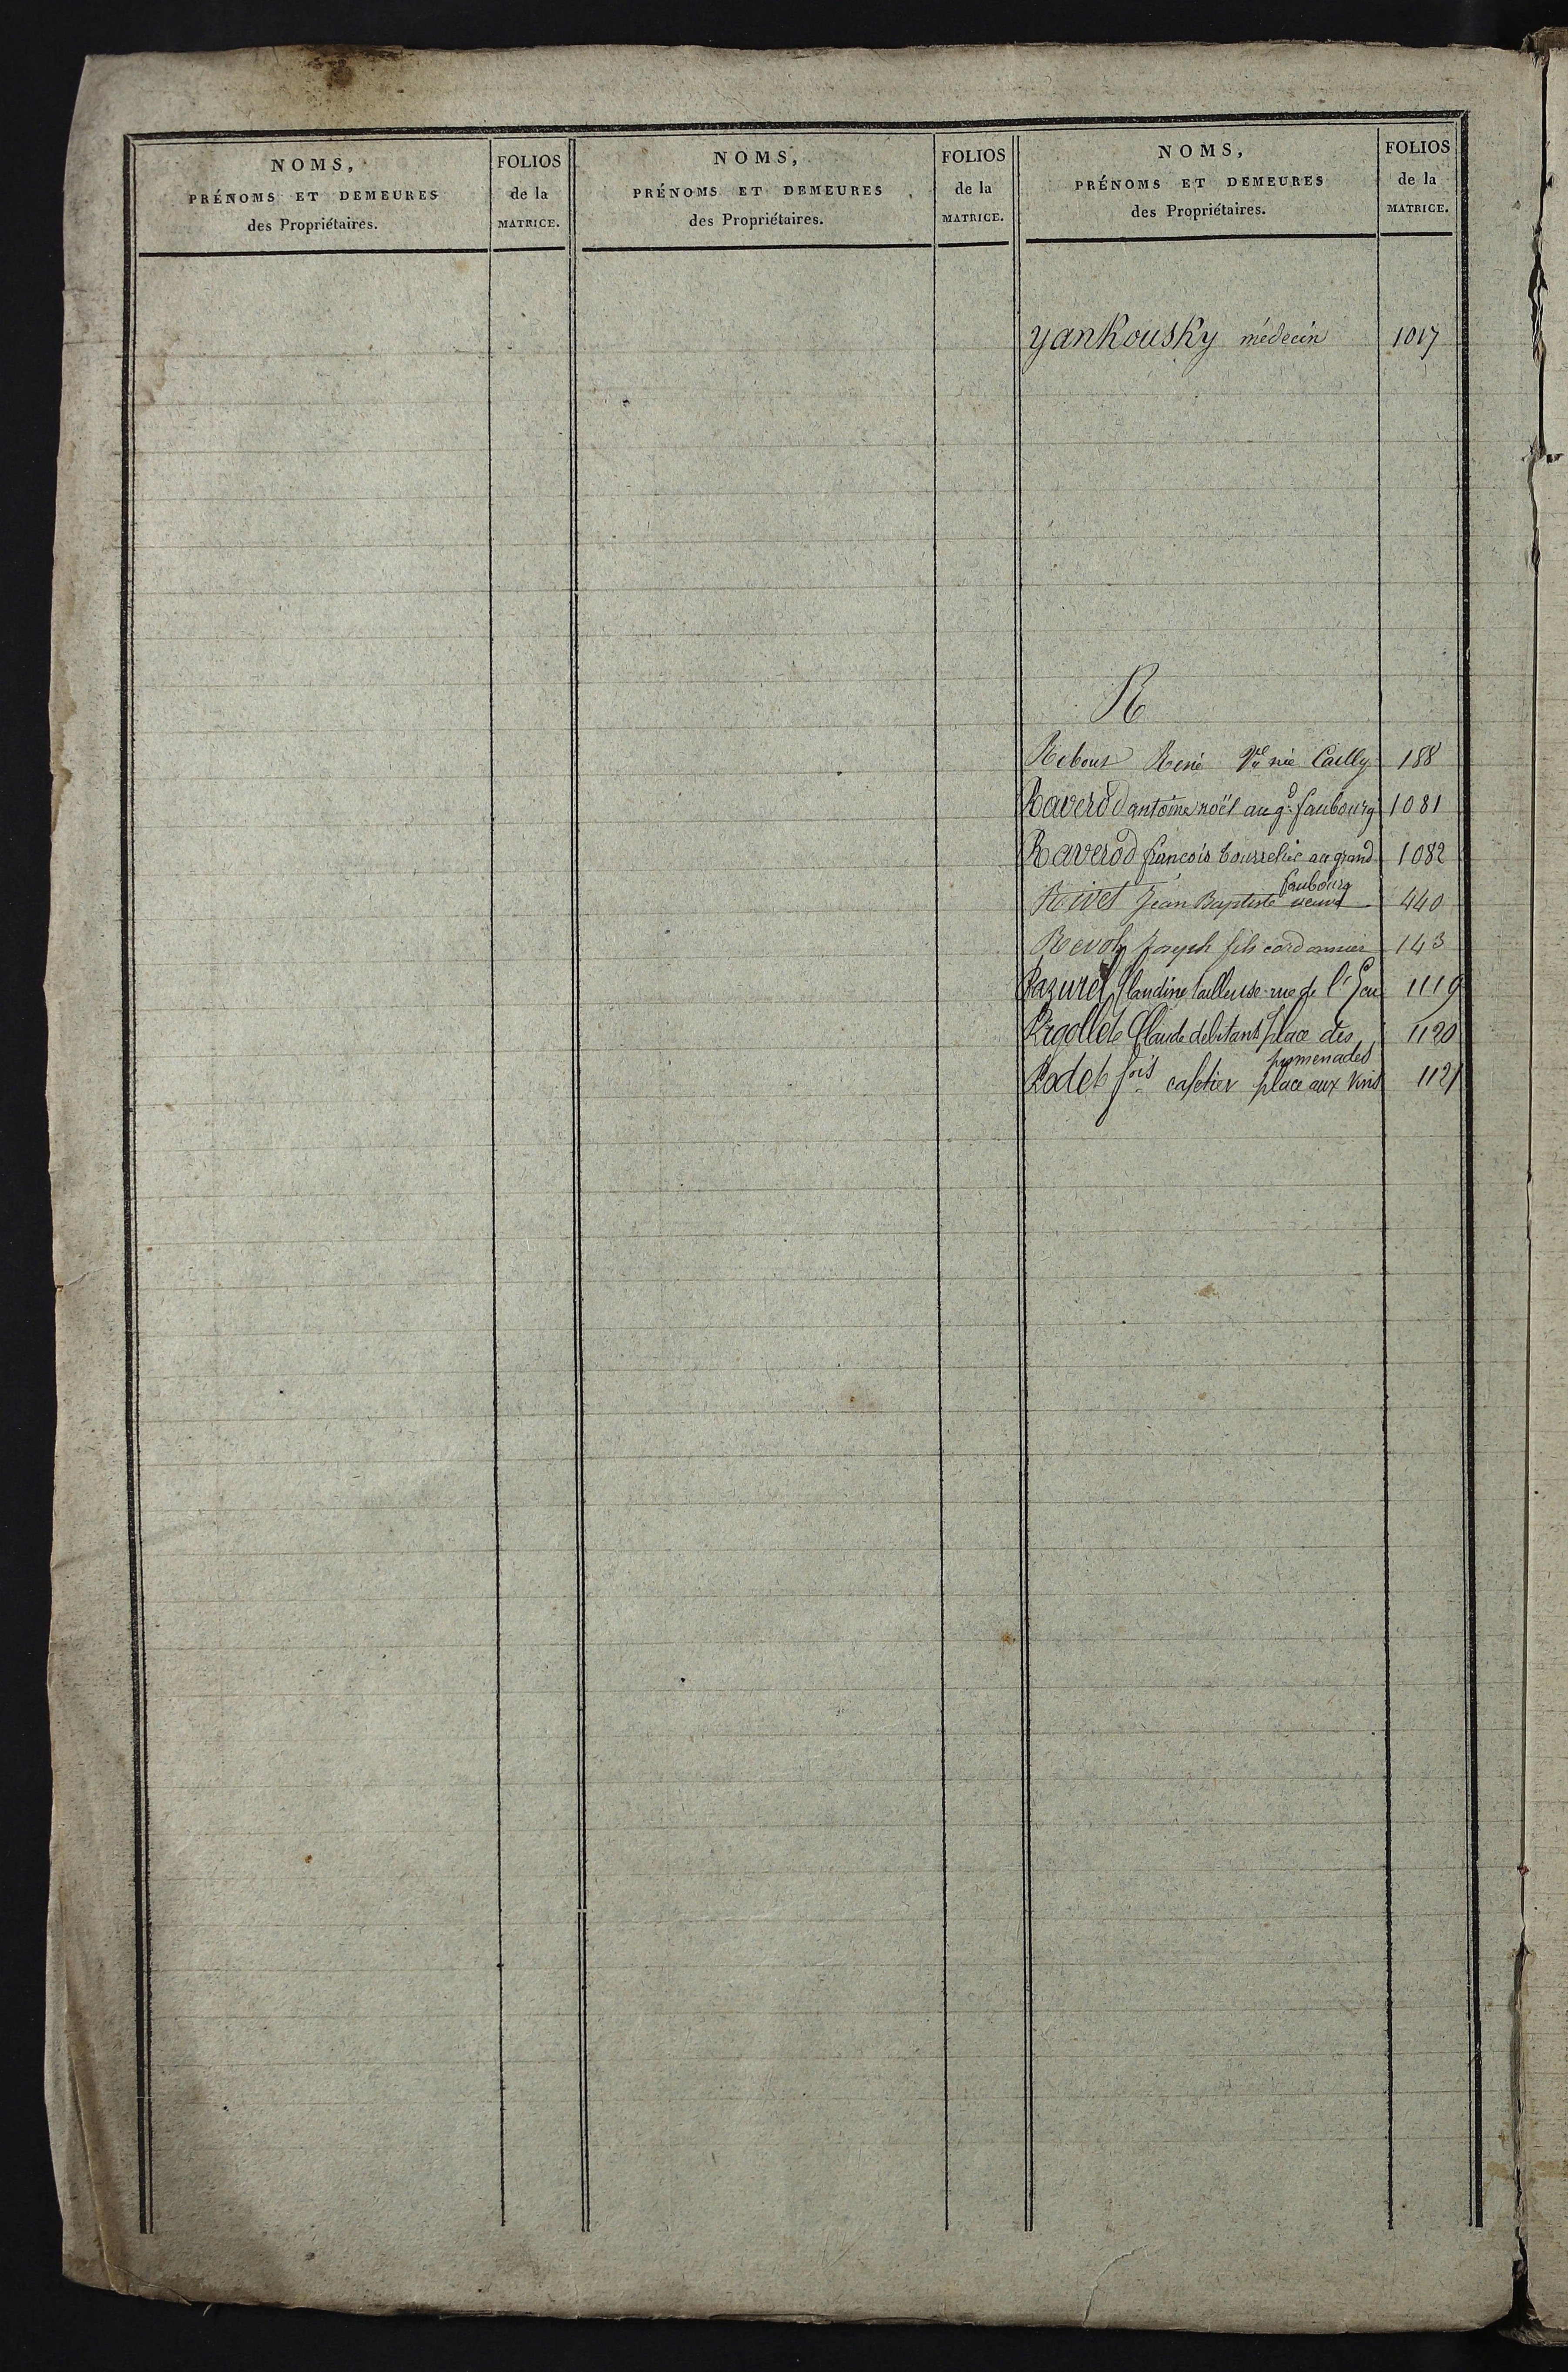 NOMS,
PRÉNOMS ET DEMEURES
des Propriétaires.
FOLIOS
de la
MATRICE.
NOMS,
PRÉNOMS ET DEMEURES
des Propriétaires.
FOLIOS
de la
MATRICE.
NOMS,
PRÉNOMS ET DEMEURES
des Propriétaires.
FOLIOS
de la
MATRICE.
yanKousKy médecin 1017
R
Rebour René Ve née Cailly 188
Raverod antoine noël au gd faubourg 1081
Raverod françois bourrelier au grand 1082
faubourg
Rivet Jean Baptiste 440
Revol Joseph fils cordonnier 143
Razurel Claudine tailleuse rue de l' 1119
Rigollet Claude debitant place des 1120
promenades
Rodet fois cafetier place aux vins 1121